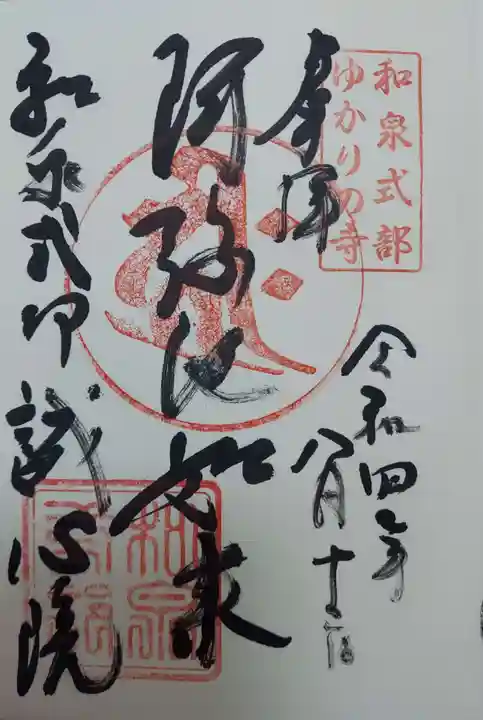 和泉式部
ゆかりの寺
奉拝
令和四年
八月十五日
阿弥陀如来
和泉式部 誠心院